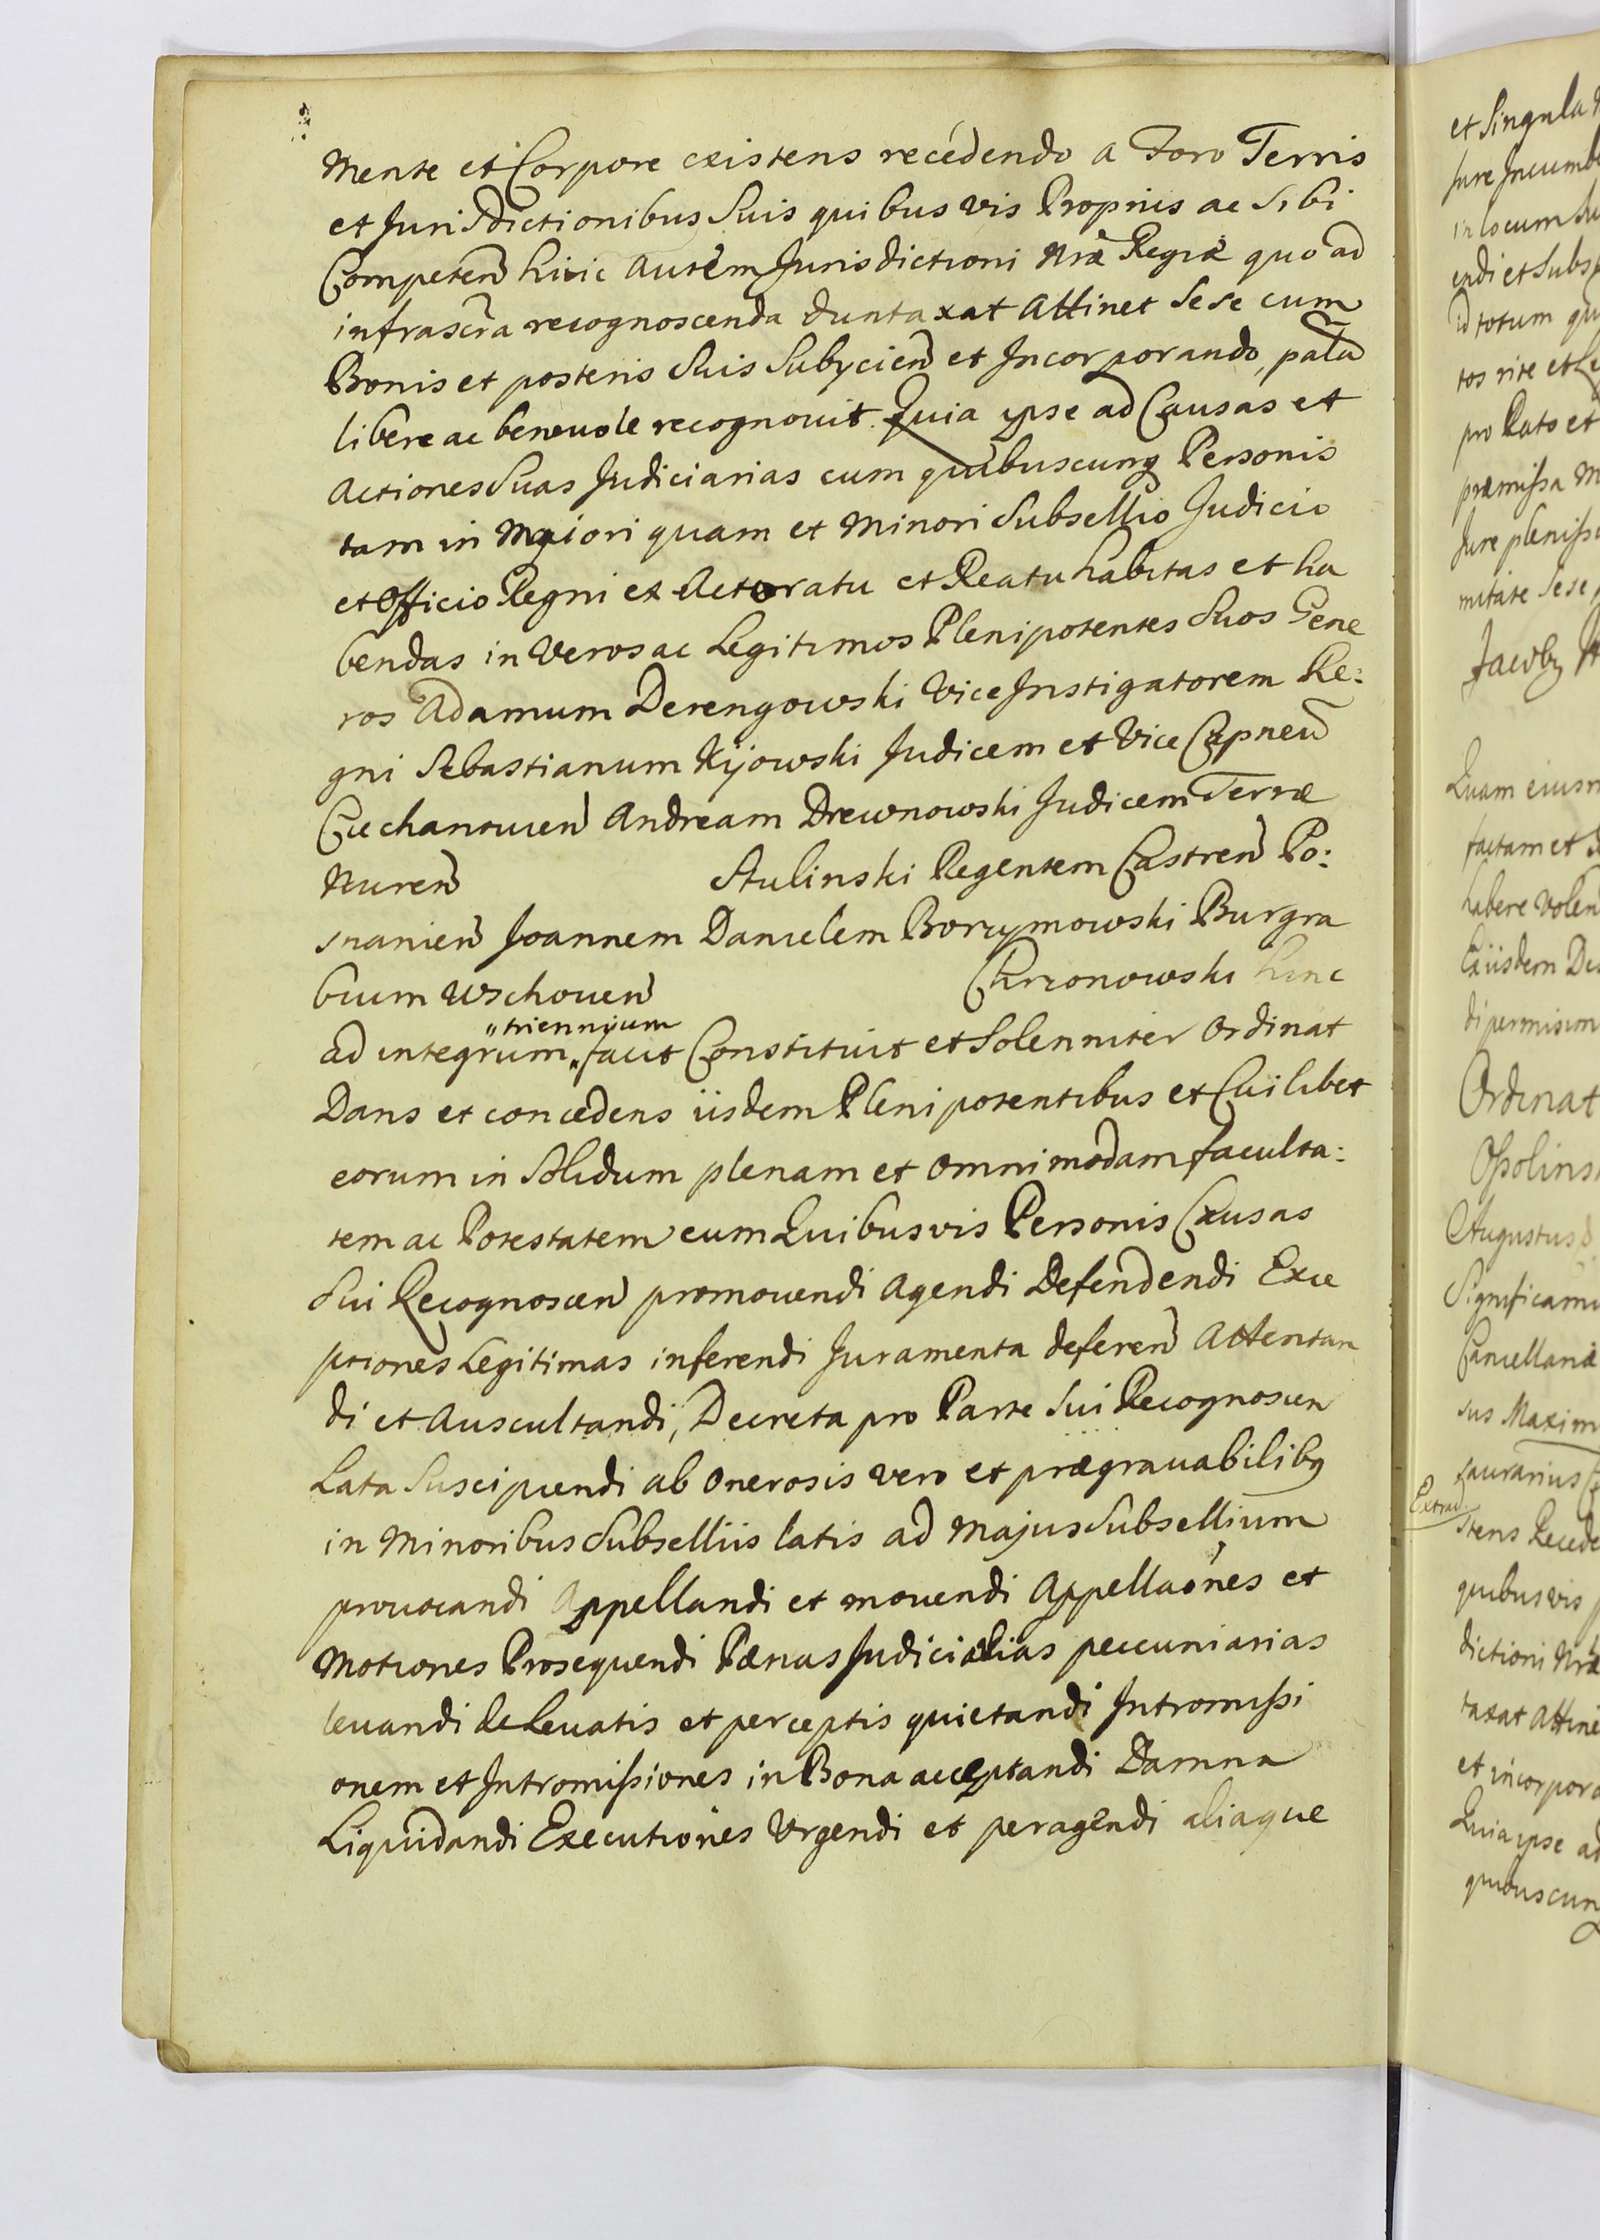 Mente et Corpore existens recedendo a Foro Terris
et Jurisdictionibus Suis quibusvis Propriis ac Sibi
Competen huic autem Jurisdictioni Nrae Regiae quo ad
infrascra recognoscenda duntaxat Attinet Sese cum
Bonis et posteris Suis Subycien et Incorporando, pala
libere ac beneuole recognouit. Quia ipse ad Causas et
Actiones Suas Judiciarias cum quibuscunq Personis
tam in Maiori quam et Minori Subsellio Judicio
et Officio Regni ex Actoratu et Reatu habitas et ha
bendas in Veros ac Legitimos Plenipotentes Suos Gene
ros Adamum Derengowski Vice Instigatorem Re:
gni Sebastianum Kijowski Judicem et Vice Capneu
Ciechanouien Andream Drewnowski Judicem Terrae
Nuren Stulinski Regentem Castren Po:
snanien Joannem Danielem Borzymowski Burgra
bium Wschouen Chrzonowski hinc
ad integrum "triennium" facit Constituit et Solenniter Ordinat
Dans et concedens iisdem Plenipotentibus et Cuilibet
eorum in Solidum plenam et omnimodam faculta:
tem ac Potestatem cum Quibusvis Personis Causas
Sui Recognoscen promouendi Agendi Defendendi Exce
ptiones Legitimas inferendi Juramenta deferen Attentan
di et Auscultandi, Decreta pro Parte Sui Recognoscen
Lata Suscipiendi ab Onerosis vero et praegrauabilibq
in Minoribus Subselliis latis ad Majus Subsellium
prouocandi Appellandi et mouendi Appellaones et
Motiones Prosequendi Paenas Judicialias peccuniarias
leuandi de Leuatis et perceptis quietandi Intromissi
onem et Intromissiones in Bona acceptandi Damna
Liquidandi Executiones Urgendi et peragendi aliaque
et Singula
Jure Incumb
in locum Su
endi et Subs
id totum qu
tos rite et Le
pro Rato et
praemissa M
Jure plenissi
mitate Sese
Jacobq
Quam eiusm
factam et
habere Volen
Eiisdem De
di permisim
Ordinat
Ossolins
Augustus
Significamu
Cancellariae
sus Maxim
saurarius
Extrad
stens Recede
quibusvis
dictioni Nrae
taxat Attine
et incorpora
Quia ipse ad
quibuscun